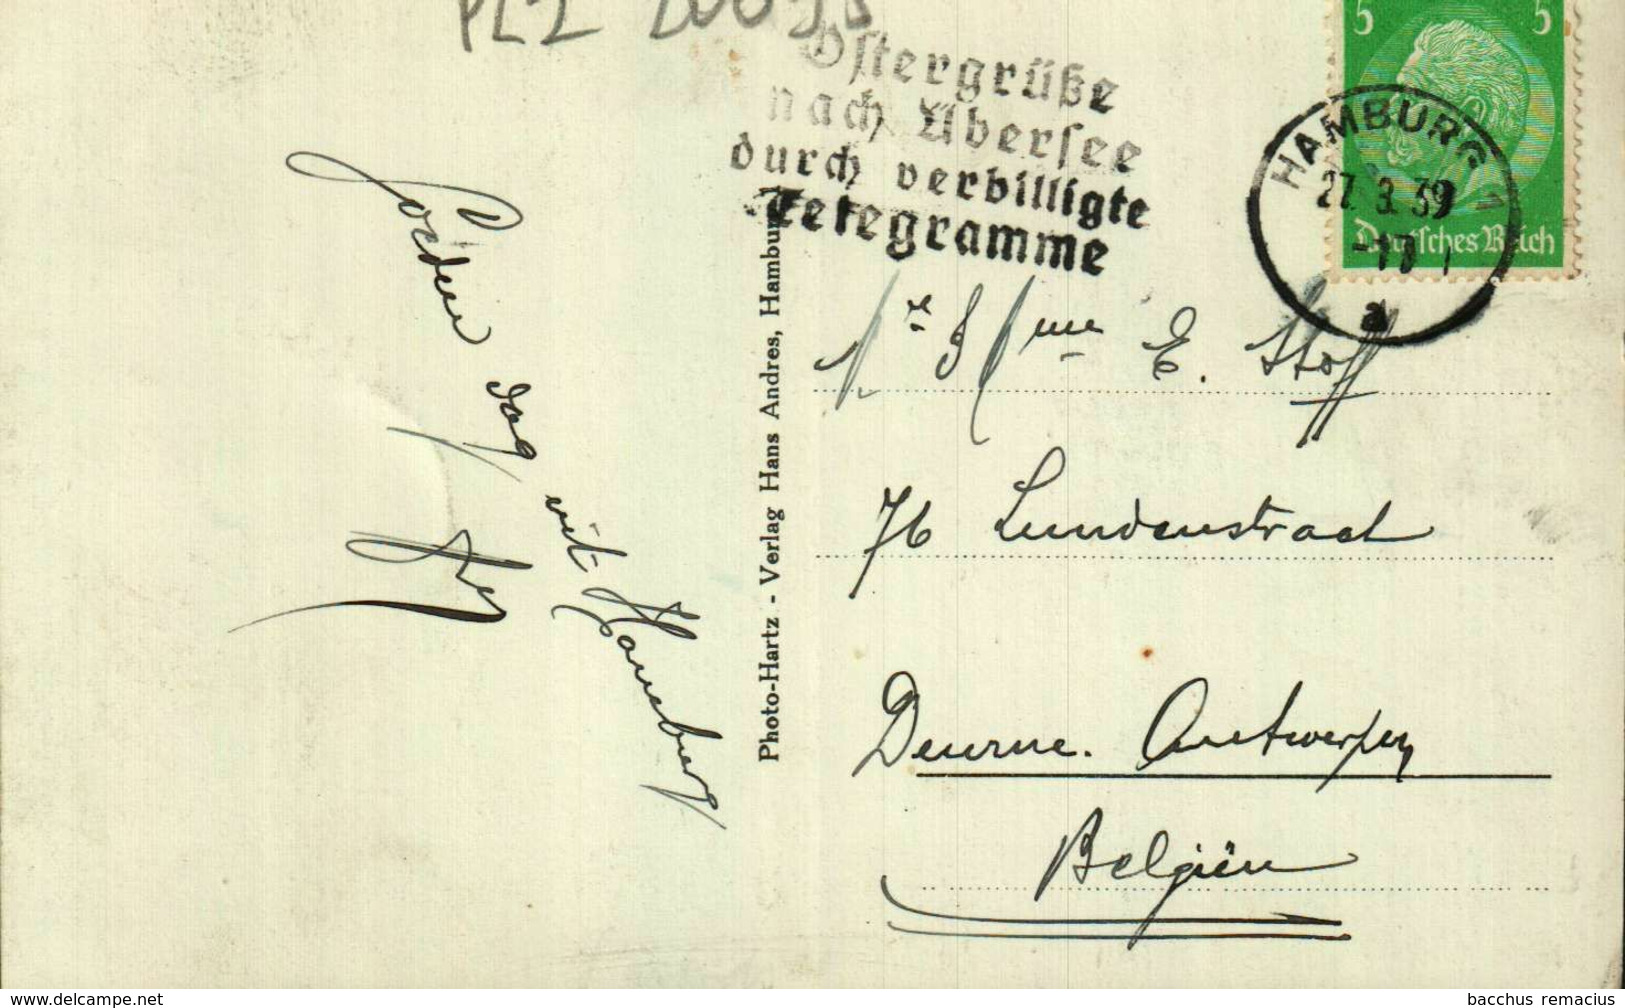 PLZ 200
Ostergrüße
nach Übersee
durch verbilligte
Telegramme
5 5
Deutsches Reich
HAMBURG 1
27.3.39
a
Goeden dag uit Hamburg
Photo-Hartz - Verlag Hans Andres, Hamburg
Mr & Mme E. Stoff
76 Lundenstraat
Deurne. Antwerpen
Belgiën
www.delcampe.net
bacchus_remacius